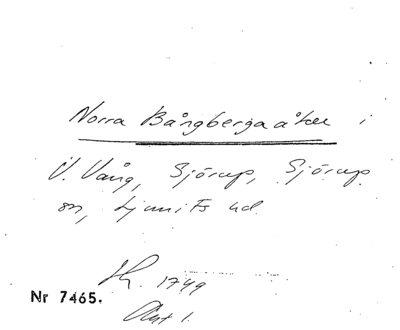 Norra Bångbergaåker i
Ö. Vång, Sjörup, Sjörup
sn, Ljunits hd
1749
Nr 7465.
Akt 1.